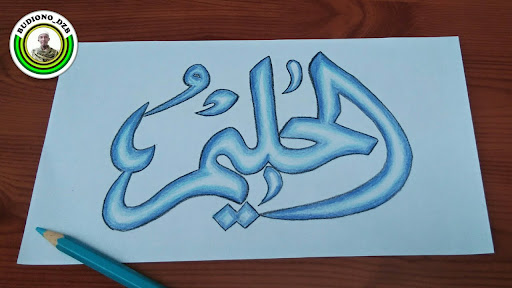 BUDIONO_DZB
الحليم